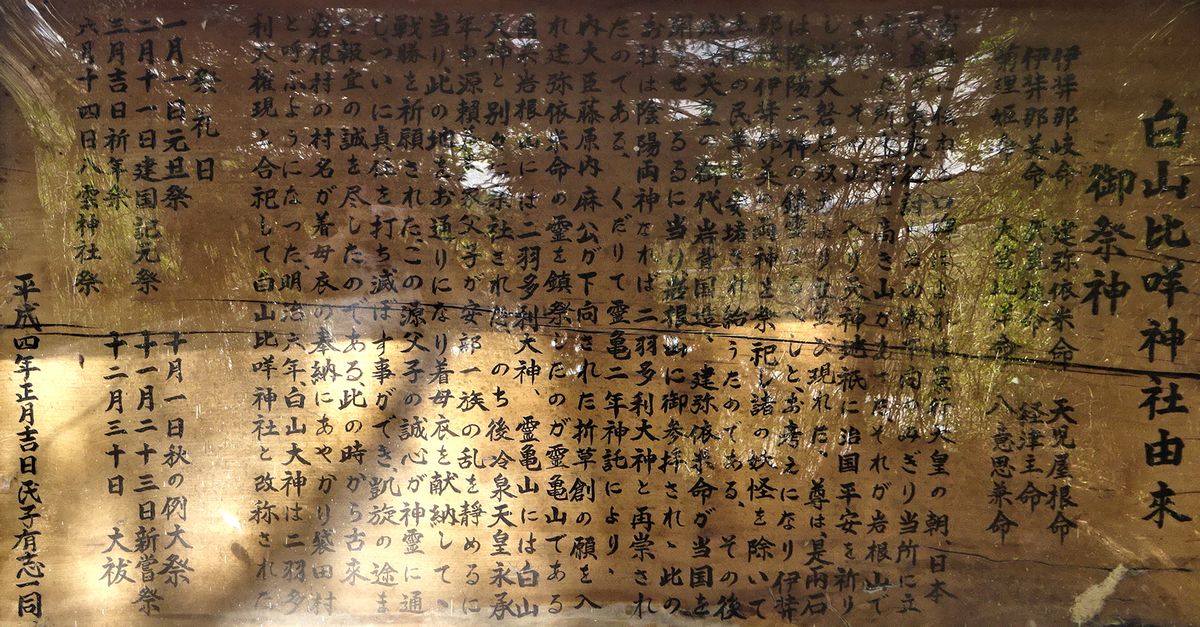 白山比咩神社由来
御祭神
伊弉那岐命 建弥依米命 天児屋根命
伊弉那美命 経津主命
菊理姫命 大宮比子命 八意思兼命
景行天皇の朝、日本
武尊が 当所に立
所に高き山が それが岩根山で
その山に入り天神地祇に治国平安を祈り
し 大磐石 双 より立並び現れた、尊は、是両石
は陰陽二神の しとお考えになり伊弉
那 伊弉那美の両神を祭祀し諸の妖怪を除いて
の民草を安堵され給うたのである、その後
成 天皇の御代岩背国造、建弥依米命が当国を
せるるに当り岩根山に御参拝され、此の
お社は陰陽両神なれば二羽多利大神と再崇され
たのである、くだりて霊亀二年神託により、
内大臣藤原内麻公が下向された折草創の願を入
れ建弥依米命の霊を鎮祭したのが霊亀山である
岩根山には二羽多利大神、霊亀山には白山
大神と別々に祭社された、のち後冷泉天皇永承
年中源頼義 父子が安部一族の乱を静めるに
当り此の地をお通りになり着母衣を献納して、
戦勝を祈願されたこの源父子の誠心が神霊に通
じついに貞任を打ち滅ぼす事ができ凱旋の途ま
た報宜の誠を尽したのである、此の時から古来
岩根村の村名が着母衣の奉納にあやかり袋田村
と呼ぶようになった明治六年、白山大神は二羽多
利大権現と合祀して白山比咩神社と改称された
祭礼日
一月一日元旦祭 十月一日秋の例大祭
二月十一日建国記元祭 十一月二十三日新嘗祭
三月吉日祈年祭 十二月三十日 大祓
六月十四日八雲神社祭
平成四年正月吉日氏子有志一同